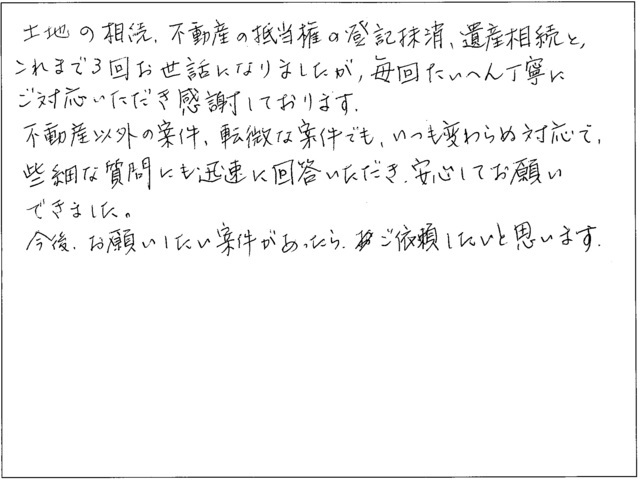 土地の相続、不動産の抵当権の登記抹消、遺産相続と、
これまで3回お世話になりましたが、毎回たいへん丁寧に
ご対応いただき感謝しております。
不動産以外の案件、軽微な案件でも、いつも変わらぬ対応で、
些細な質問にも迅速に回答いただき、安心してお願い
できました。
今後、お願いしたい案件があったら、ご依頼したいと思います。